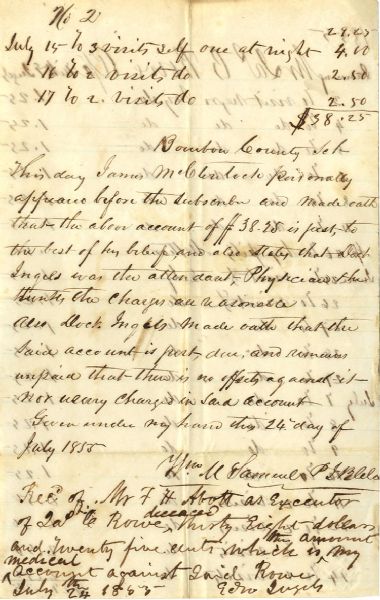 No 2
29.25
July 15 To 3 visits self one at night 4.00
" 16 To 2 visits do 2.50
" 17 To 2. visits do 2.50
$38.25
Bourbon County Sct
This day James McClintock personally
appeared before the subscriber and made oath
that the above account of $38.25 is just, to
the best of his belief and also states that Dock
Ingels was the attendant Physician & he
thinks the charges are reasonable
Also Dock Ingels made oath that the
said account is just, due, and remains
unpaid that there is no offsets against it
nor usury charged in said account
Given under my hand this 24th day of
July 1855
Wm M Samuel
Recd of Mr F H Abott as Executor
of Rowe, deceased Thirty Eight dollars
and Twenty five cents which is the amount my
medical
account against said Rowe
July 24th 1855 Ingels